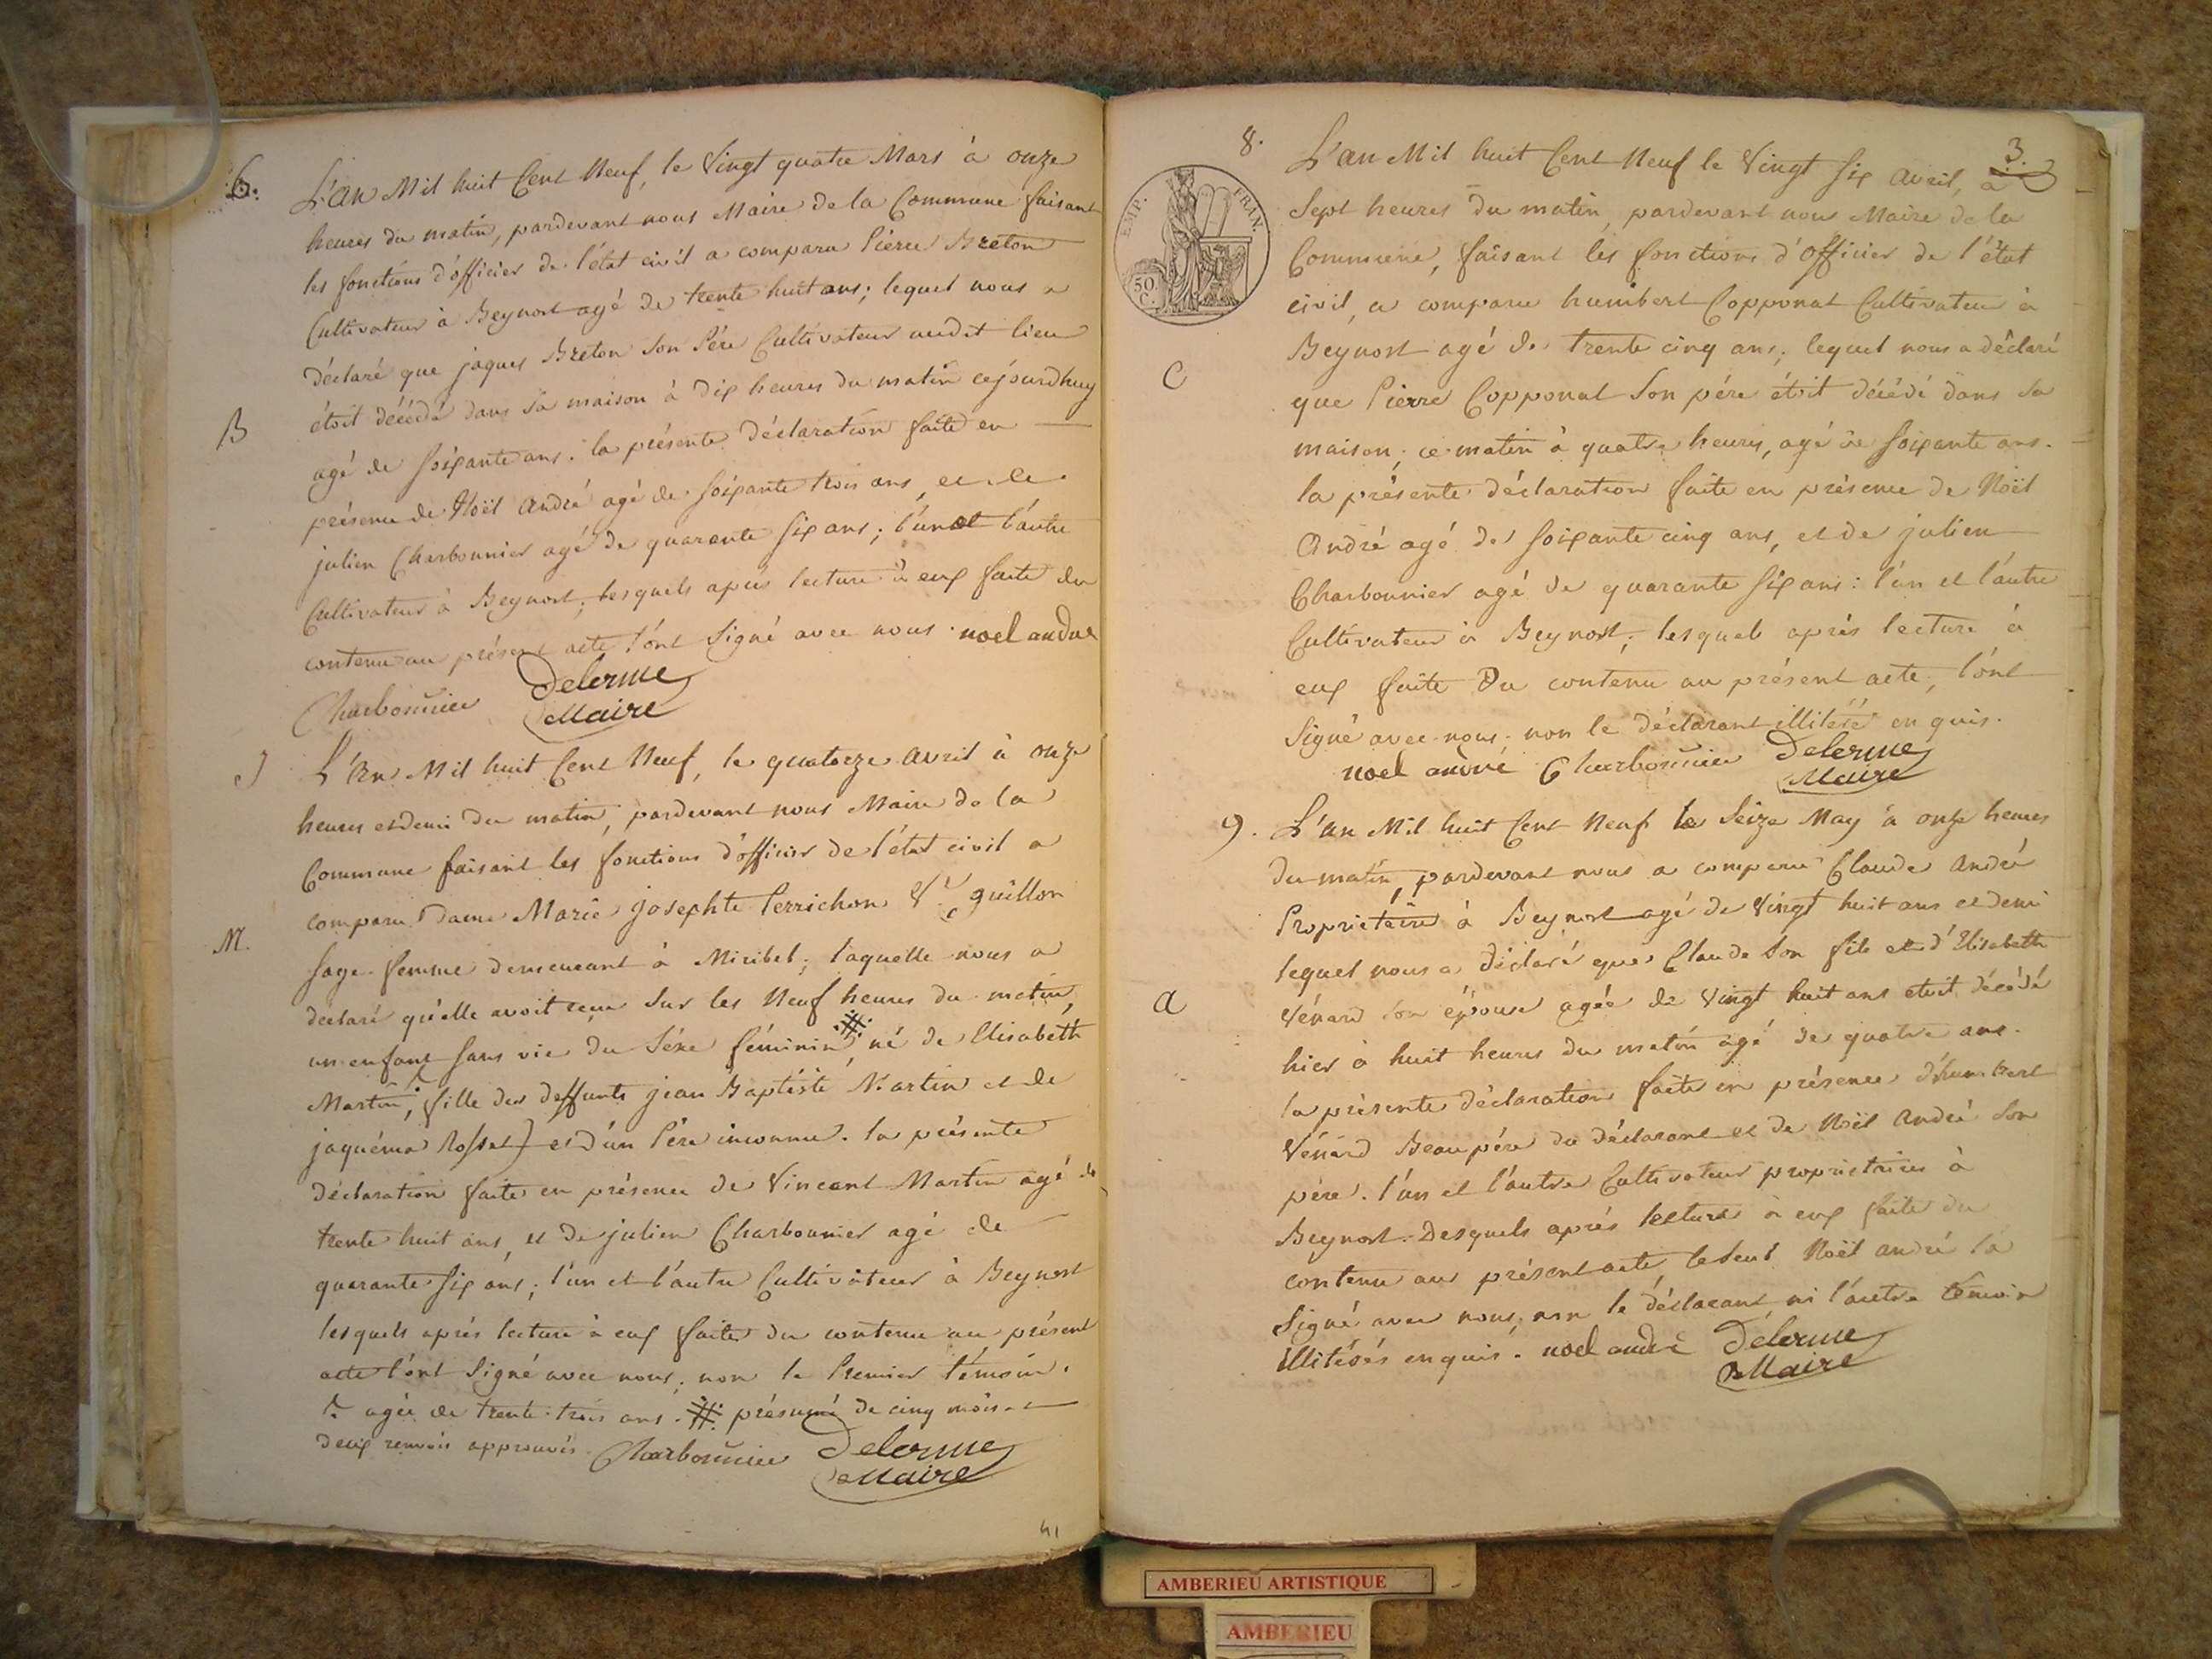 6.
L'an Mil huit Cent Neuf, le Vingt quatre Mars à onze
heures du matin, pardevant nous Maire de la Commune faisant
les fonctions d'officier de l'état civil a comparu Pierre Breton
Cultivateur à Beynost agé de trente huit ans; lequel nous a
déclaré que jaques Breton son Pére Cultivateur audit lieu
étoit décédé dans sa maison à dix heures du matin cejourdhuy
B
agé de soixante ans. la présente déclaration faite en
présence de Noël André agé de soixante trois ans, et de
julien Charbonnier agé de quarante six ans; l'un et l'autre
Cultivateur à Beynost; lesquels aprés lecture à eux faite du
contenu au présent acte l'ont signé avec nous. noel andre
Charbonnier Delerme
Maire
L'an Mil huit Cent Neuf, le quatorze avril à onze
heures et demi du matin, pardevant nous Maire de la
Commune faisant les fonctions d'officier de l'état civil a
comparu dame Marie josephte Perrichon Vе guillon
M.
sage-femme demeurant à Miribel; laquelle nous a
déclaré qu'elle avoit reçu sur les Neuf heures du matin,
un enfant sans vie du séxe féminin #, né de Elisabeth
Martin, fille des deffunts jean Baptiste Martin et de
jaquéma Rosset) et d'un Pére inconnu. la présente
déclaration faite en présence de Vincent Martin agé de
trente huit ans, et de julien Charbonnier agé de
quarante six ans; l'un et l'autre Cultivateur à Beynost
lesquels aprés lecture à eux faite du contenu au présent
acte l'ont signé avec nous; non le Premier témoin.
agée de trente trois ans. # présumé de cinq mois
deux renvois approuvés. Charbonnier Delerme
Maire
8.
3.
L'an Mil huit Cent Neuf le Vingt six avril, à
sept heures du matin, pardevant nous Maire de la
EMP. FRAN.
50
C.
Commune, faisant les fonctions d'officier de l'état
civil, a comparu humbert Copponat Cultivateur à
Beynost agé de trente cinq ans; lequel nous a déclaré
C
que Pierre Copponat son pére étoit décédé dans sa
maison; ce matin à quatre heures, agé de soixante ans.
la présente déclaration faite en présence de Noël
André agé de soixante cinq ans, et de julien
Charbonnier agé de quarante six ans: l'un et l'autre
Cultivateur à Beynost; lesquels aprés lecture à
eux faite Du contenu au présent acte, l'ont
signé avec nous. non le déclarant illitéré enquis.
noel andré Charbonnier Delerme
Maire
9.
L'an Mil huit Cent Neuf le Seize May à onze heures
du matin, pardevant nous a comparu Claude André
Propriétaire à Beynost agé de Vingt huit ans et demi
lequel nous a déclaré que Claude son fils et d'Elisabeth
a
Vénard son épouse agée de Vingt huit ans etoit décédé
hier à huit heures du matin agé de quatre ans.
la présente déclaration faite en présence d'humbert
Vénard Beaupére du déclarant et de Noël André son
pére. l'un et l'autre Cultivateur propriétaires à
Beynost. Desquels aprés lecture à eux faite du
contenu au présent acte le seul Noël André l'a
signé avec nous; non le déclarant ni l'autre témoin
illitérés enquis. noel andré Delerme
Maire
AMBERIEU ARTISTIQUE
AMBERIEU